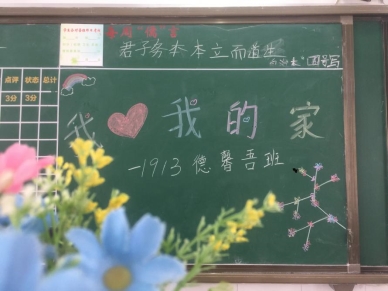 君子务本 本立而道生
点评 状态 总计
3分 3分
我 我的家
-1913 德馨吾班